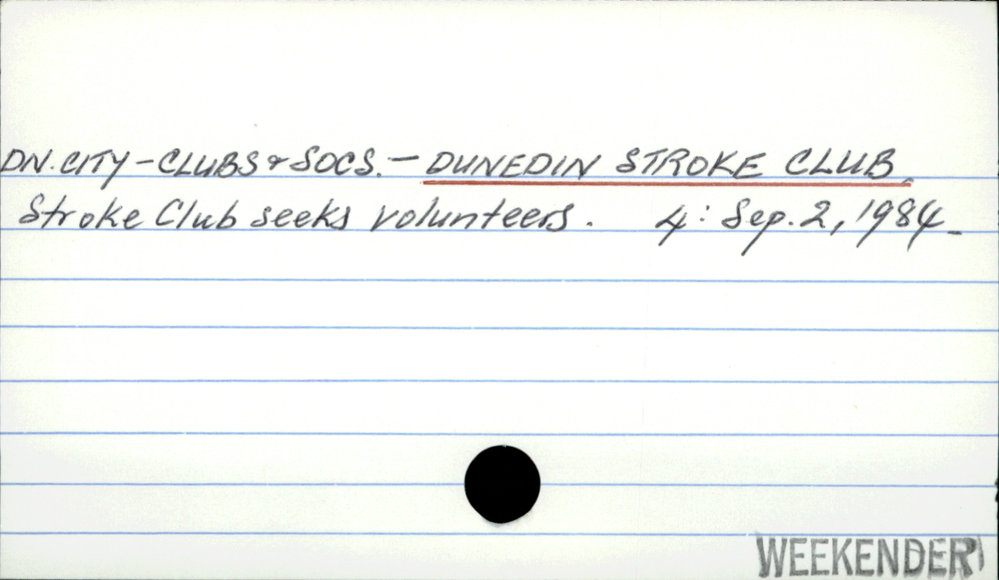 DN. CITY - CLUBS & SOCS. - DUNEDIN STROKE CLUB.
Stroke Club seeks volunteers. 4: Sep. 2, 1984
WEEKENDER